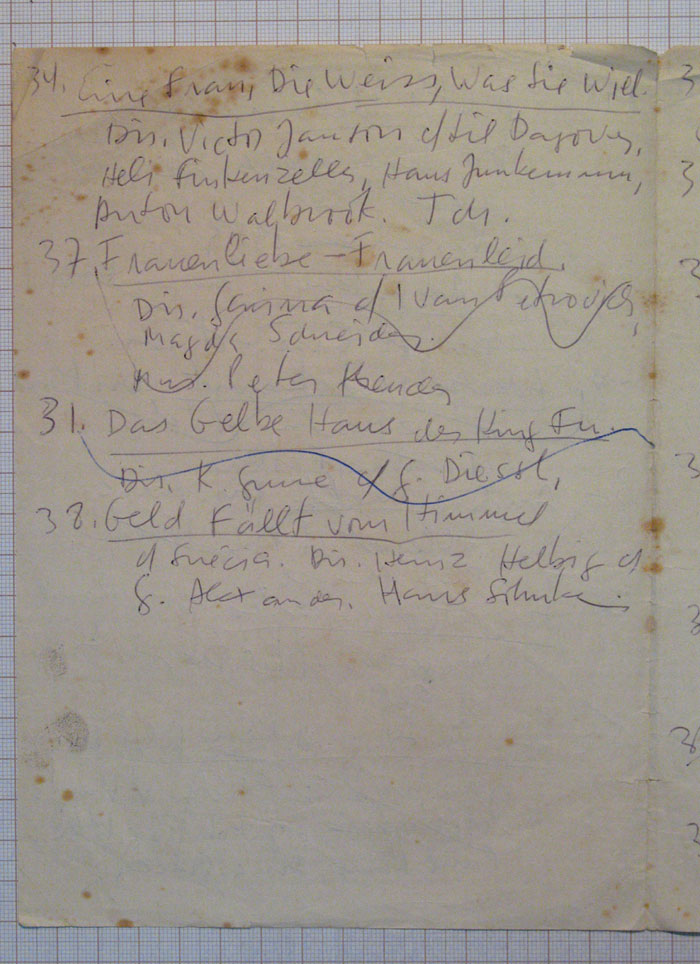 34. Eine Frau, Die Weiss, Was Sie Will.
Dir. Victor Janson c/ Lil Dagover,
Heli Finkenzeller, Hans Junkermann,
Anton Walbrook. Tch.
37. Frauenliebe - Frauenleid.
Dir. Genina c/ Ivan Petrovich,
Magda Schneider.
Mus. Peter Kreuder
31. Das Gelbe Haus des King Fu.
Dir. K. Grune c/ G. Diessl,
38. Geld Fällt vom Himmel
Dir. Heinz Helbig c/
G. Alexander. Hans
3
3
3
3
3
36
3